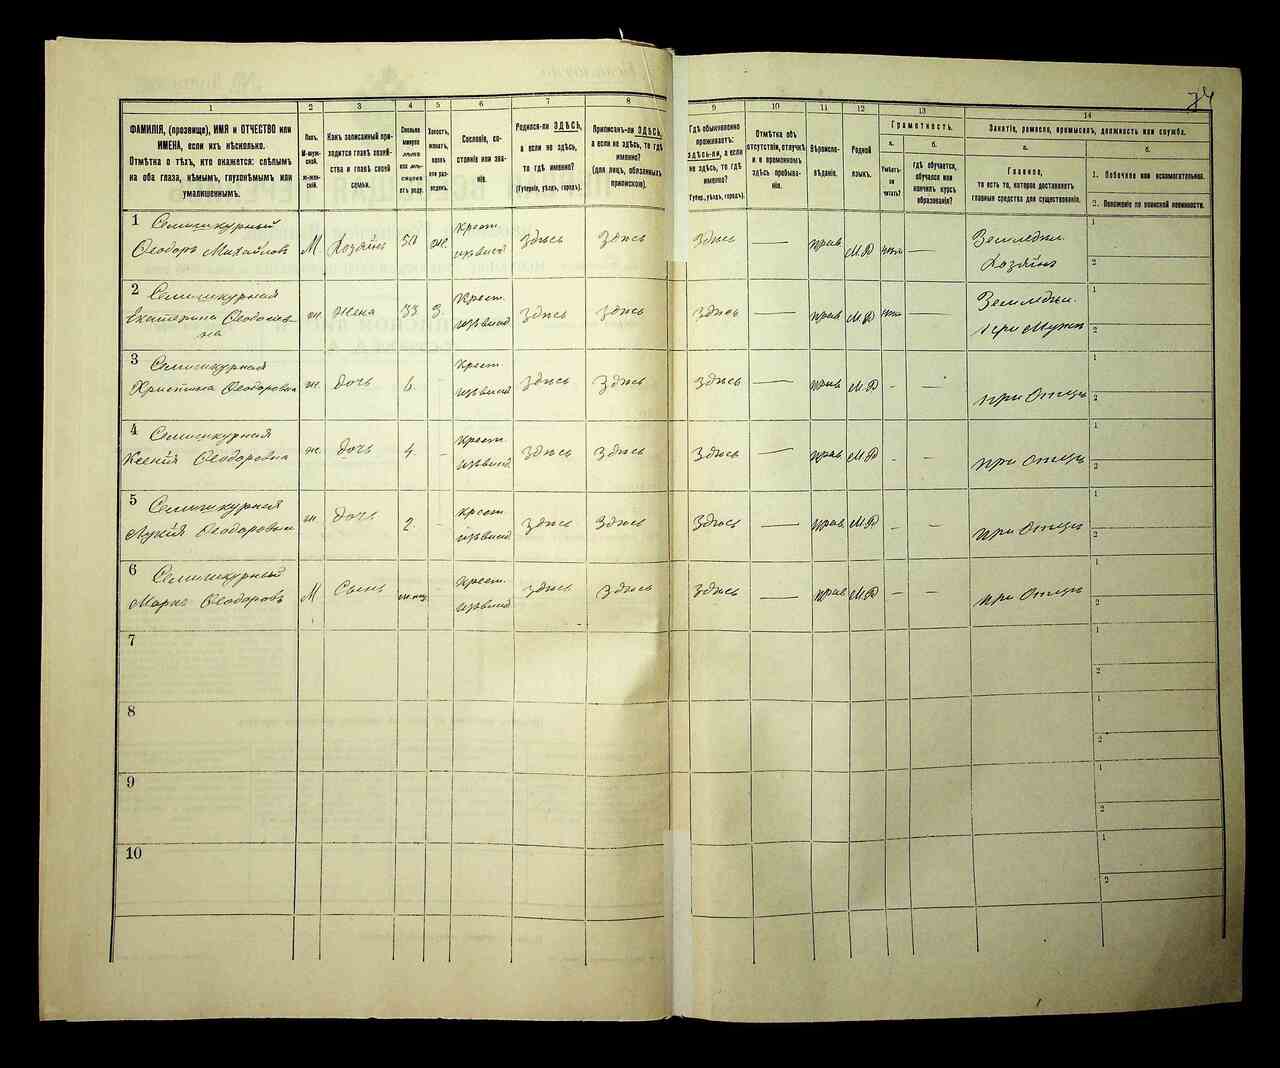 74
1 2 3 4 5 6 7 8 9 10 11 12 13 14
ФАМИЛІЯ, (прозвище), ИМЯ и ОТЧЕСТВО или
ИМЕНА, если ихъ нѣсколько.
Отмѣтка о тѣхъ, кто окажется: слѣпымъ
на оба глаза, нѣмымъ, глухонѣмымъ или
умалишеннымъ.
Полъ.
М-муж-
ской.
ж-жен-
скій.
Какъ записанный при-
ходится главѣ хозяй-
ства и главѣ своей
семьи.
Сколько
минуло
лѣтъ
или мѣ-
сяцевъ
отъ роду.
Холостъ,
женатъ,
вдовъ
или раз-
веденъ.
Сословіе, со-
стояніе или зва-
ніе.
Родился-ли ЗДѢСЬ,
а если не здѣсь,
то гдѣ именно?
(Губернія, уѣздъ, городъ).
Приписанъ-ли ЗДѢСЬ,
а если не здѣсь, то гдѣ
именно?
(для лицъ, обязанныхъ
припискою).
Гдѣ обыкновенно
проживаетъ:
ЗДѢСЬ-ли, а если
не здѣсь, то гдѣ
именно?
(Губер., уѣздъ, городъ).
Отмѣтка объ
отсутствіи, отлучкѣ
и о временномъ
здѣсь пребыва-
ніи.
Вѣроиспо-
вѣданіе.
Родной
языкъ.
Грамотность.
а.
Умѣетъ-
ли
читать?
б.
гдѣ обучается,
обучался или
кончилъ курсъ
образованія?
Занятіе, ремесло, промыселъ, должность или служба.
а.
Главное,
то есть то, которое доставляетъ
главныя средства для существованія.
б.
1. Побочное или вспомогательное.
2. Положеніе по воинской повинности.
1 Семишкурный Крест.
Ѳеодоръ Михайловъ М Хозяинъ 50 ж. здѣсь здѣсь здѣсь — прав М.Р — Земледѣл. Хозяинъ
1
2
2 Семишкурная Крест.
Екатерина м Жена 33 З. здѣсь здѣсь здѣсь — прав М.Р — Земледѣл. при Мужѣ
на
1
2
3 Семишкурная Крест.
Христина Ѳеодоровна ж. дочь 6. - здѣсь здѣсь здѣсь — прав М.Р - - при Отцѣ
1
2
4 Семишкурная Крест.
Ксенія Ѳеодоровна ж. дочь 4. - здѣсь здѣсь здѣсь — прав М.Р - - при Отцѣ
1
2
5 Семишкурная Крест.
Лукія Ѳеодоровна ж. дочь 2. - здѣсь здѣсь здѣсь — прав М.Р - - при Отцѣ
1
2
6 Семишкурный Крест.
Марко Ѳеодоровъ М Сынъ здѣсь здѣсь здѣсь — прав М.Р - - при Отцѣ
1
2
7
1
2
8
1
2
9
1
2
10
1
2